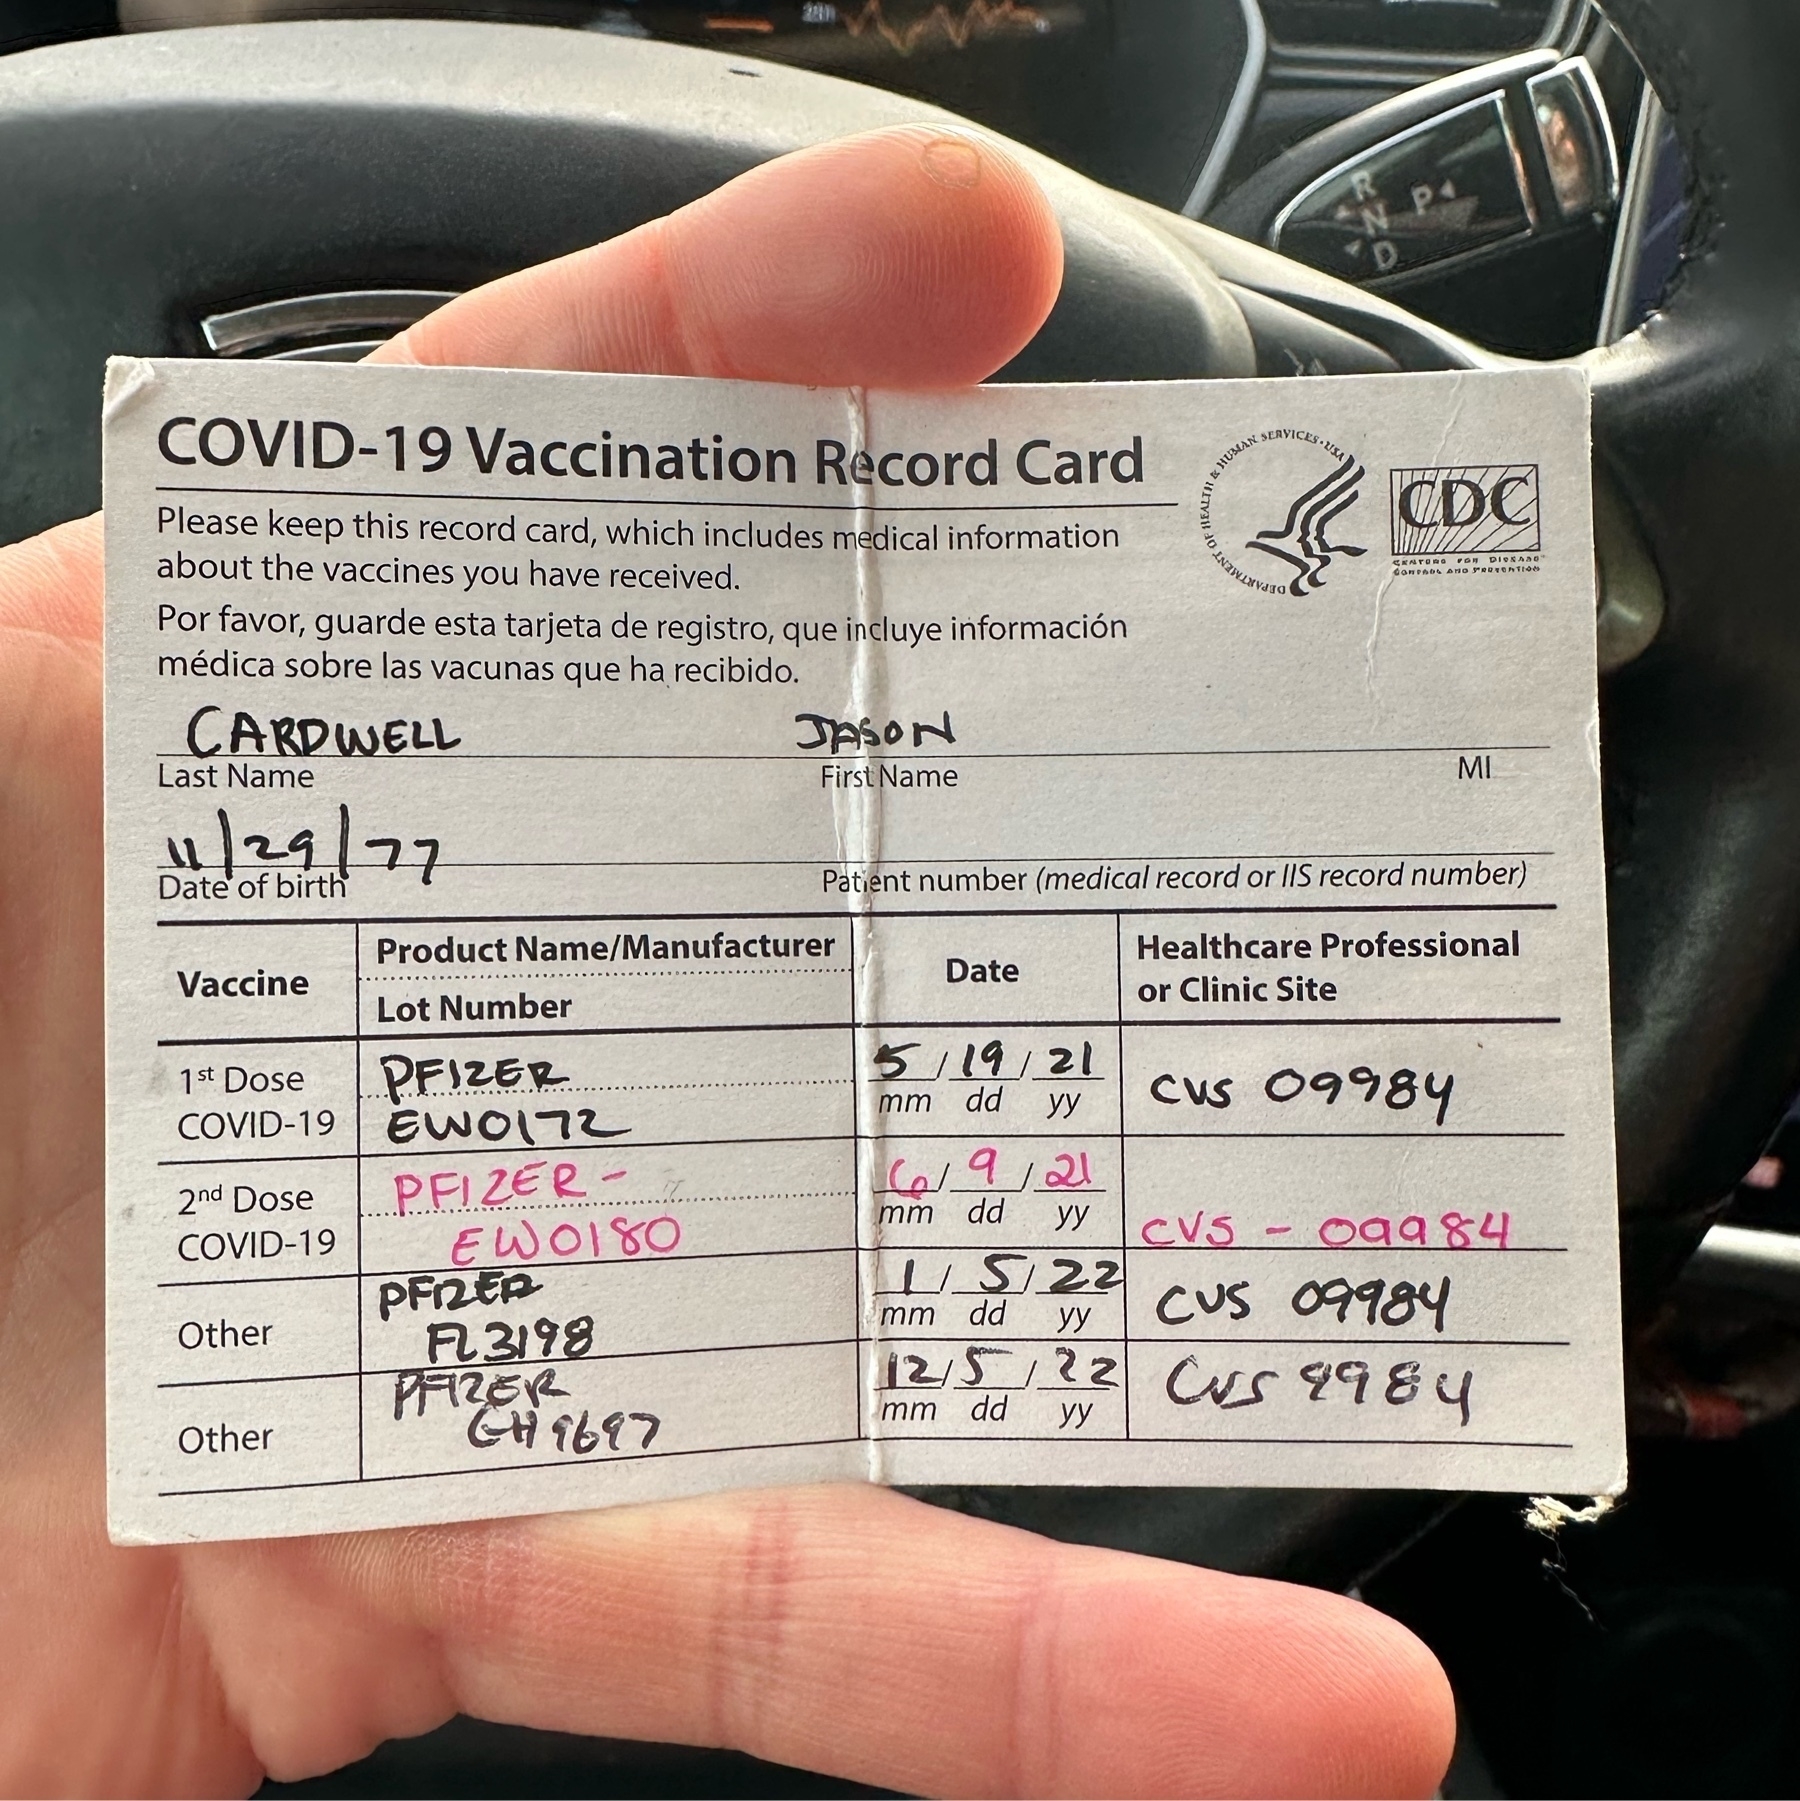 R
N P
D
COVID-19 Vaccination Record Card
DEPARTMENT OF HEALTH & HUMAN SERVICES • USA
CDC
CENTERS FOR DISEASE
CONTROL AND PREVENTION
Please keep this record card, which includes medical information
about the vaccines you have received.
Por favor, guarde esta tarjeta de registro, que incluye información
médica sobre las vacunas que ha recibido.
CARDWELL JASON
Last Name First Name MI
11/29/77
Date of birth Patient number (medical record or IIS record number)
Vaccine
Product Name/Manufacturer
Lot Number
Date
Healthcare Professional
or Clinic Site
1st Dose
COVID-19
PFIZER
EW0172
5 / 19 / 21
mm dd yy
CVS 09984
2nd Dose
COVID-19
PFIZER -
EW0180
6 / 9 / 21
mm dd yy
CVS - 09984
Other
PFIZER
FL3198
1 / 5 / 22
mm dd yy
CVS 09984
Other
PFIZER
GH9697
12 / 5 / 22
mm dd yy
CVS 9984